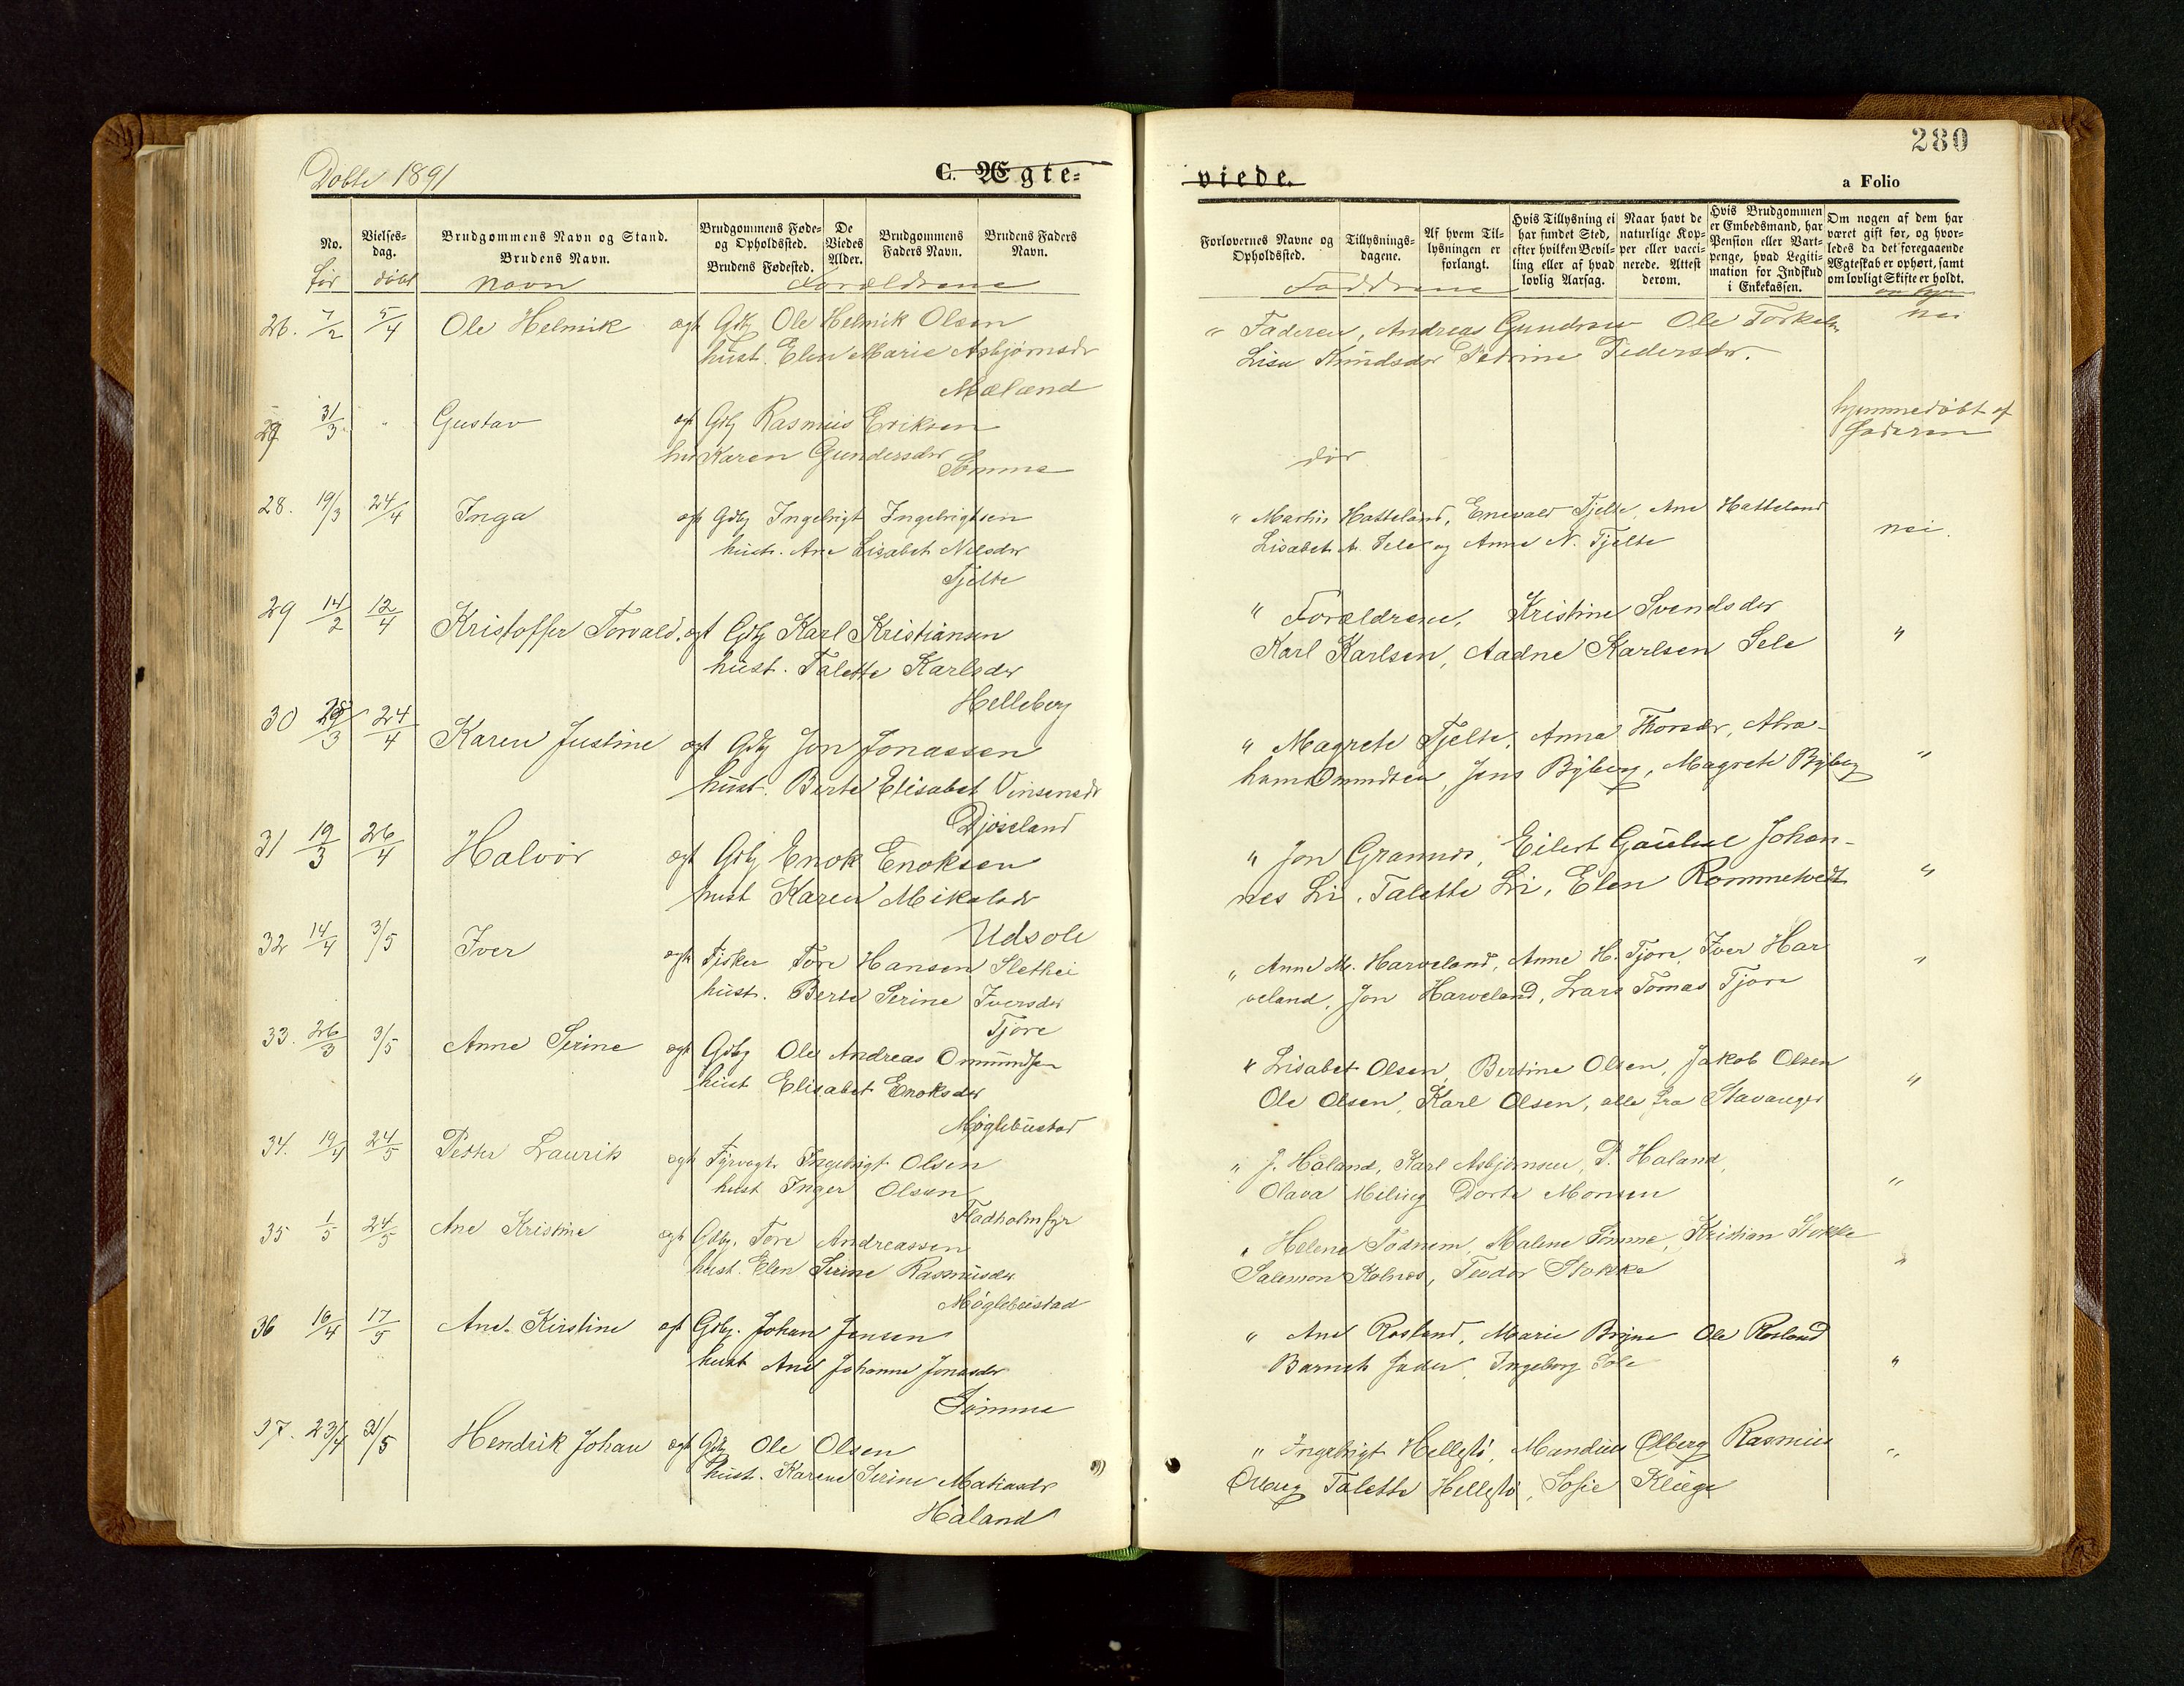 280
Døbte 1891
C. Ægte-
viede.
a Folio
No.
Vielses-
dag.
Brudgommens Navn og Stand.
Brudens Navn.
Brudgommens Føde-
og Opholdssted.
Brudens Fødested.
De
Viedes
Alder.
Brudgommens
Faders Navn.
Brudens Faders
Navn.
Forlovernes Navne og
Opholdssted.
Tillysnings-
dagene.
Af hvem Til-
lysningen er
forlangt.
Hvis Tillysning ei
har fundet Sted,
efter hvilken Bevil-
ling eller af hvad
lovlig Aarsag.
Naar havt de
naturlige Kop-
per eller vacci-
nerede. Attest
derom.
Hvis Brudgommen
er Embedsmand, har
Pension eller Vart-
penge, hvad Legiti-
mation for Indskud
i Enkekassen.
Om nogen af dem har
været gift før, og hvor-
ledes da det foregaaende
Ægteskab er ophørt, samt
om lovligt Skifte er holdt.
før døbt Navn Forældrene
Faddrene
26. 7/2 5/4 Ole Helmik ægt Gdbg Ole Helmik Olsen
hust. Elen Marie Asbjørnsdr
Mæland
" Faderen, Andreas Gundersen Ole Torkels
Lisa Knudsdr Petrine Pedersdr.
nei
27 31/3 " Gustav ægt Gdbg Rasmus Eriksen
hu Karen Gundersdr
Sømme
dør
hjemmedøbt af
Faderen
28. 19/3 24/4 Inga ægt Gdbg Ingebrigt Ingebrigtsen
hust. Ane Lisabet Nilsdr
Tjelte
" Martin Hatteland, Enevald Tjelte, Ane Hatteland
Lisabet A. Sele og Anne N. Tjelte
nei.
29 14/2 12/4 Kristoffer Torvald. ægt Gdbg Karl Kristiansen
hust. Talette Karlsdr
Helleberg
" Forældrene, Kristine Svendsdr
Karl Karlsen, Aadne Karlsen Sele
"
30 28/3 24/4 Karen Justine ægt Gdbg Jon Jonassen
hust. Berte Elisabet Vinsensdr
Djøseland
" Magrete Tjelte, Anna Thorsdr, Abra-
ham Omundsen, Jens Byberg, Magrete Byberg
"
31 19/3 26/4 Halvor ægt Gdbg Enok Enoksen
hust Karen Mikalsdr
Udsole
" Jon Grannes, Eilert Gausel Johan-
nes Li, Talette Li, Elen Rommetvedt
"
32 14/4 3/5 Iver ægt Fisker Tore Hansen Slethei
hust. Berte Serine Iversdr
Tjore
" Anne M. Harveland, Anne H. Tjore, Iver Har
veland, Jon Harveland, Lars Tomas Tjore
"
33. 26/3 3/5 Anne Serine ægt Gdbg Ole Andreas Omundsen
hust Elisabet Enoksdr
Møglebustad
" Lisabet Olsen, Bertine Olsen, Jakob Olsen
Ole Olsen, Karl Olsen, alle fra Stavanger
"
34. 19/4 24/5 Petter Laurits ægt Fyrvogt. Ingebrigt Olsen
hust Inger Olsen
Fladholmfyr
" J. Håland, Karl Asbjørnsen, P. Haland,
Olava Meling Dorte Monsen
"
35 1/5 24/5 Ane Kristine ægt Gdbg. Tore Andreassen
hust. Elen Serine Rasmusdr
Møglebustad
" Helene Todnem, Malene Sømme, Kristian Stokke
Salemon Kolnes, Teodor Stokke
"
36 16/4 17/5 Ane Kirstine ægt Gdbg. Johan Jensen
hust Ane Johanne Jonasdr
Sømme
" Ane Rosland, Marie Bryne Ole Rosland
Barnets fader, Ingeborg Sole
"
37. 23/4 31/5 Hendrik Johan ægt Gdbg Ole Olsen
hust. Karen Serine Matiasdr
Håland
" Ingebrigt Hellestø, Mandius Ølberg Rasmus
Ølberg Talette Hellestø, Sofie Kluge
"